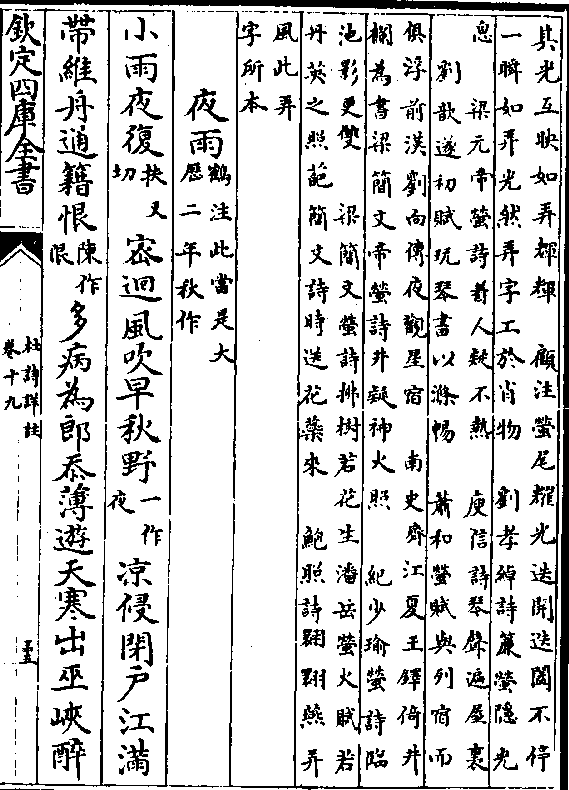 其光互映如弄輝輝　顧注螢尾耀光迭開迭闔不停
一瞬如弄光然弄字工於肖物　劉孝綽詩簾螢隱光
息　梁元帝螢詩着人疑不熱　庾信詩琴聲遍屋裏
劉歆遂初賦玩琴書以滌暢　蕭和螢賦與列宿而
俱浮前漢劉向傳夜觀星宿　南史齊江夏王鐸倚井
欄為書梁簡文帝螢詩井疑神火照　紀少瑜螢詩臨
池影更雙　梁簡文螢詩拂樹若花生潘岳螢火賦若
丹英之照葩簡文詩時送花藥來　鮑照詩翾翾燕弄
風此弄
字所本
夜雨
鶴注此當是大
歴二年秋作
小雨夜復扶又切密迴風吹早秋野一作夜凉侵閉户江滿
帶維舟通籍恨陳作限多病為郎忝薄遊天寒出巫峽醉
欽定四庫全書
杜詩詳註
卷十九